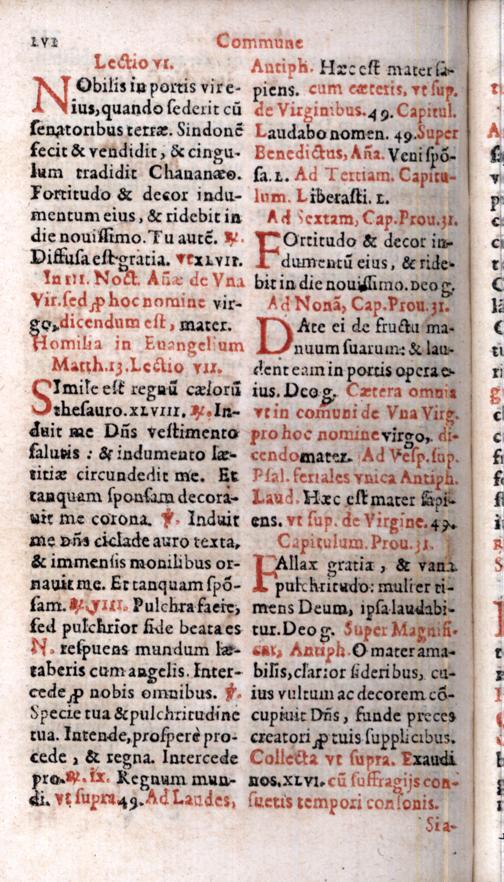 LVI
Commune
Lectio vi.
NObilis in portis vir e-
ius, quando sederit cũ
senatoribus terræ. Sindonẽ
fecit & vendidit, & cingu-
lum tradidit Chananæo.
Fortitudo & decor indu-
mentum eius, & ridebit in
die nouissimo. Tu autẽ. ℟.
Diffusa est gratia. vt xLVII.
In III. Noct. Añæ de Vna
Vir. sed ꝓ hoc nomine vir-
go, dicendum est, mater.
Homilia in Euangelium
Matth. 13. Lectio VII.
SImile est regnũ cælorũ
thesauro. XLVIII. ℟. In-
duit me Dñs vestimento
salutis : & indumento læ-
titiæ circundedit me. Et
tanquam sponsam decora-
uit me corona. ℣. Induit
me Dñs ciclade auro texta,
& immensis monilibus or-
nauit me. Et tanquam spõ-
sam. ℟. VIII. Pulchra facie,
sed pulchrior fide beata es
N. respuens mundum læ-
taberis cum angelis. Inter-
cede ꝓ nobis omnibus. ℣.
Specie tua & pulchritudine
tua. Intende, prosperè pro-
cede, & regna. Intercede
pro. ℟. IX. Regnum mun-
di. vt supra 49. Ad Laudes,
Antiph. Hæc est mater sa-
piens. cum cæteris, vt sup.
de Virginibus. 49. Capitul.
Laudabo nomen. 49. Super
Benedictus, Aña. Veni spõ-
sa. L. Ad Tertiam. Capitu-
lum. Liberasti. L.
Ad Sextam, Cap. Prou. 31.
FOrtitudo & decor in-
dumentũ eius, & ride-
bit in die nouissimo. Deo g.
Ad Nonã, Cap. Prou. 31.
DAte ei de fructu ma-
nuum suarum: & lau-
dent eam in portis opera e-
ius. Deo g. Cætera omnia
vt in comuni de Vna Virg.
pro hoc nomine virgo, di-
cendo mater. Ad Vesp. sup.
Psal. feriales vnica Antiph.
Laud. Hæc est mater sapi-
ens. vt sup. de Virgine. 49.
Capitulum. Prou. 31.
FAllax gratia, & vana
pulchritudo: mulier ti-
mens Deum, ipsa laudabi-
tur. Deo g. Super Magnifi-
cat, Antiph. O mater ama-
bilis, clarior sideribus, cu-
ius vultum ac decorem cõ-
cupiuit Dñs, funde preces
creatori ꝓ tuis supplicibus.
Collecta vt supra. Exaudi
nos. XLVI. cũ suffragijs con-
suetis tempori consonis.
Sia-